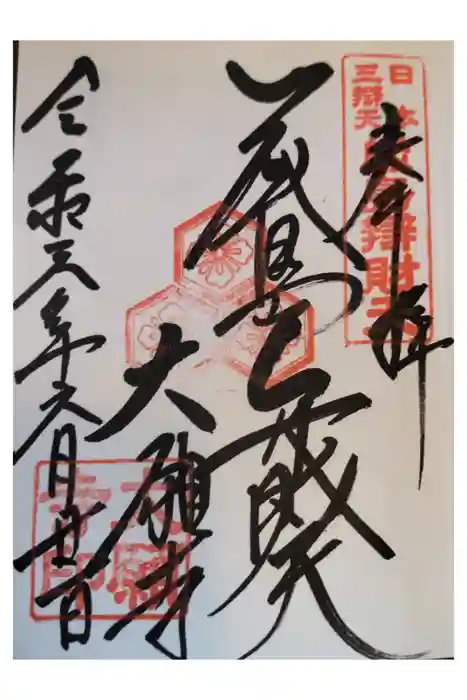 日本三辨天
嚴島辨財天
奉拝
厳島弁財天
大願寺
大願寺印
令和三年六月廿一日